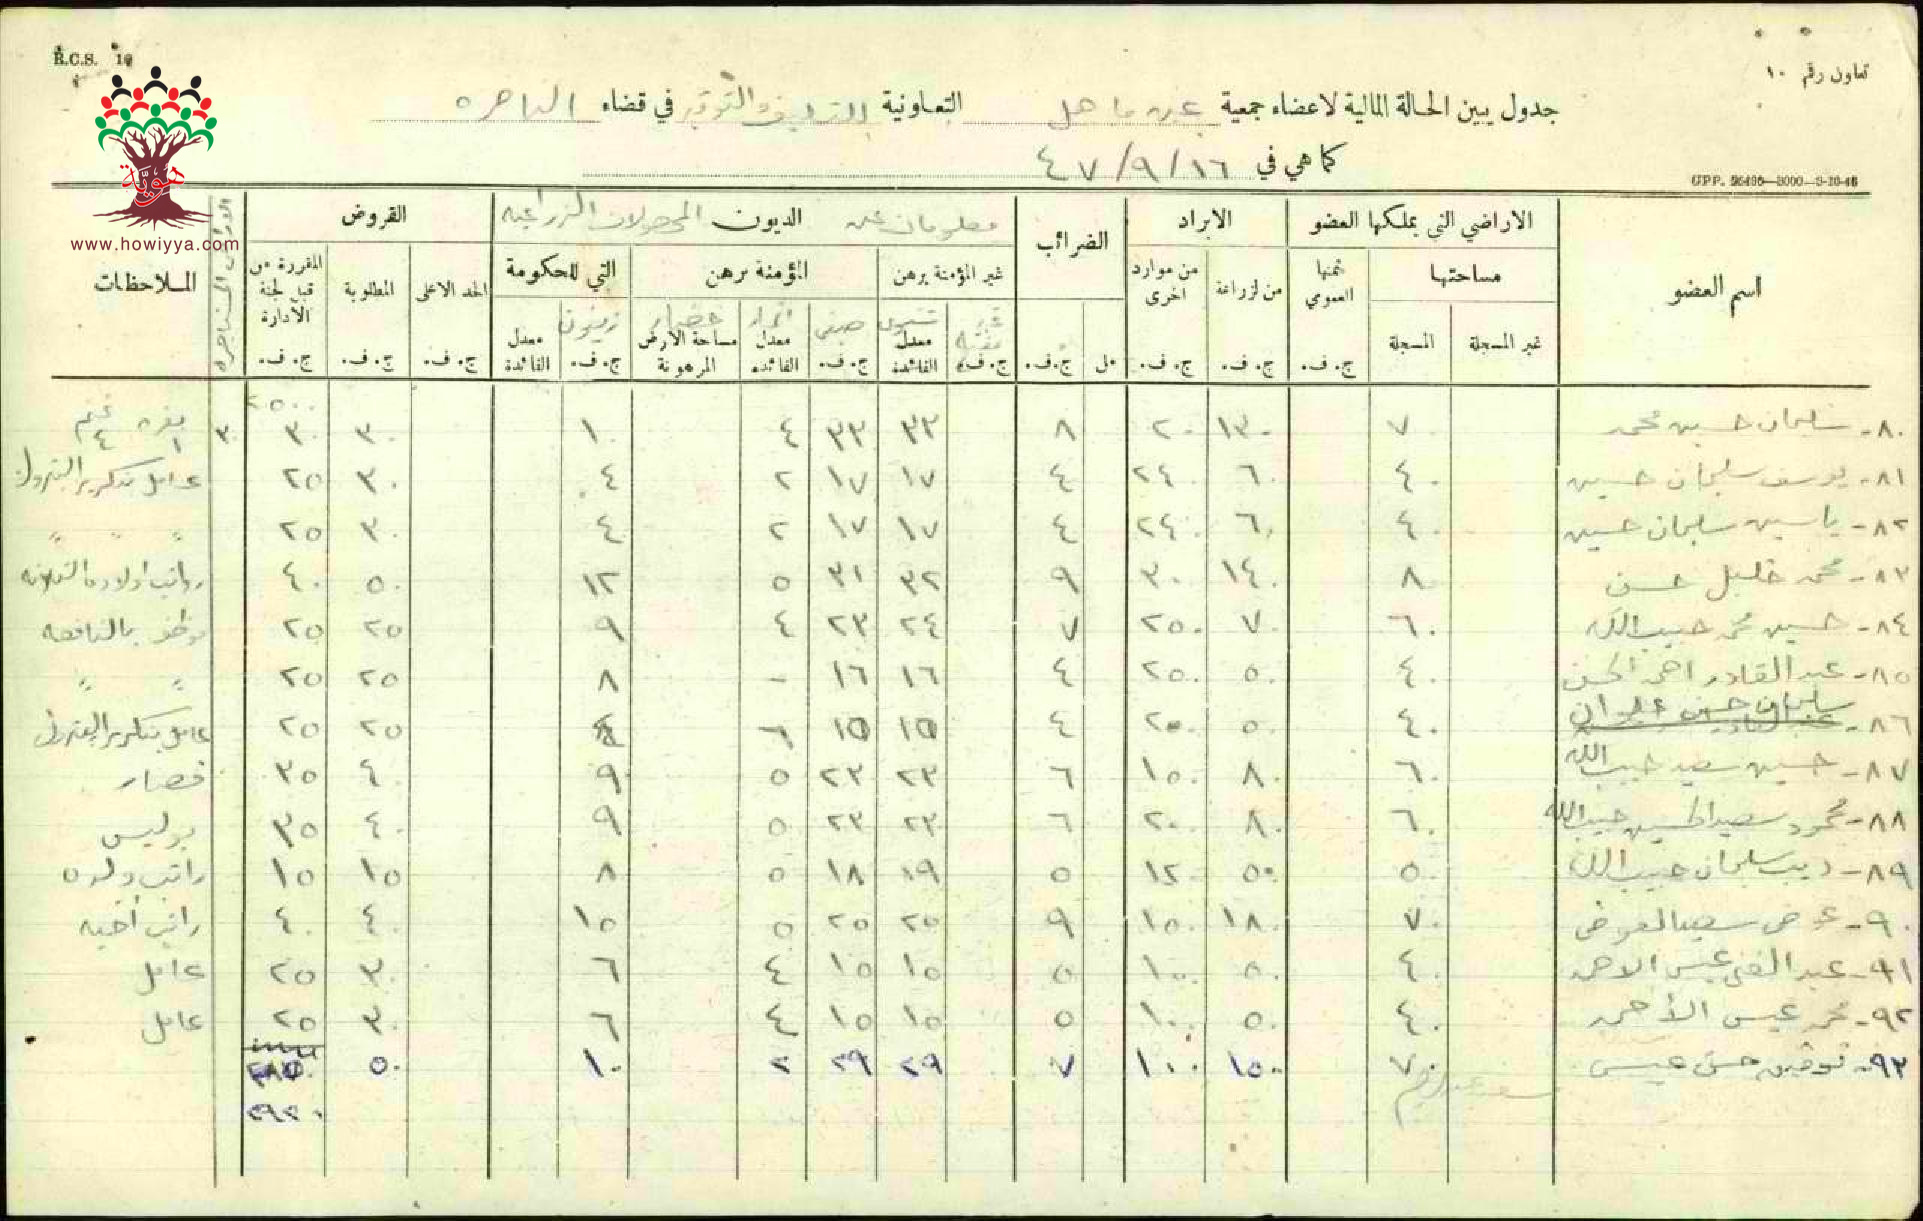 R.C.S. 10
تعاون رقم ١٠
جدول يبين الحالة المالية لاعضاء جمعية عين ماهل التعاونية للتسليف والتوفير في قضاء الناصره
كما هي في ١٦/٩/٤٧
GPP. 26495—3000—9-10-46
هوية
www.howiyya.com
اسم العضو الاراضي التي يملكها العضو الايراد الضرائب معلومات عن الديون المحصولات الزراعيه القروض الملاحظات
مساحتها ثمنها العمومي من لزراعة من موارد اخرى غير المؤمنة برهن المؤمنة برهن التي للحكومة الحد الاعلى المطلوبة المقررة من قبل لجنة الأدارة
غير المسجلة المسجلة ج. ف. ج. ف. ج. ف. مل ج. ف. ج. ف. معدل الفائدة ج. ف. صيفي معدل الفائدة مساحة الارض المرهونة خضار ج. ف. زيتون معدل الفائدة ج. ف. ج. ف. ج. ف.
٢٥٠٠
٨٠- سليمان حسين محمد ٧٠ ١٣٠ ٢٠ ٨ ٣٣ ٣٣ ٤ ١٠ ٣٠ ٣٠ ٣٠ بقره ١ غنم ٤
٨١- يوسف سليمان حسين ٤٠ ٦٠ ٢٤٠ ٤ ١٧ ١٧ ٢ ٤ ٣٠ ٢٥ عامل بتكرير البترول
٨٢- ياسين سليمان حسين ٤٠ ٦٠ ٢٤٠ ٤ ١٧ ١٧ ٢ ٤ ٣٠ ٢٥ " " "
٨٣- محمد خليل حسن ٨٠ ١٤٠ ٣٠٠ ٩ ٣٢ ٣١ ٥ ١٢ ٥٠ ٤٠ رواتب اولاده الثلاثه
٨٤- حسين محمد حبيب الله ٦٠ ٧٠ ٢٥٠ ٧ ٢٤ ٢٣ ٤ ٩ ٢٥ ٢٥ موظف بالنافعه
٨٥- عبد القادر احمد الحسن ٤٠ ٥٠ ٢٥٠ ٤ ١٦ ١٦ - ٨ ٢٥ ٢٥ " "
٨٦- سليمان حسن علوان ٤٠ ٥٠ ٢٥٠ ٤ ١٥ ١٥ ٦ ٢٥ ٢٥ عامل بتكرير البترول
٨٧- حسين سعيد حبيب الله ٦٠ ٨٠ ١٥٠ ٦ ٢٣ ٢٣ ٥ ٩ ٤٠ ٣٥
٨٨- محمود سعيد الحسين حبيب الله ٦٠ ٨٠ ٢٠٠ ٦ ٢٣ ٢٣ ٥ ٩ ٤٠ ٣٥ بوليس
٨٩- ديب سليمان حبيب الله ٥٠ ٥٠ ١٢٠ ٥ ١٩ ١٨ ٥ ٨ ١٥ ١٥ راتب ولده
٩٠- عوض سعيد العوض ٧٠ ١٨٠ ١٥٠ ٩ ٢٥ ٢٥ ٥ ١٥ ٤٠ ٤٠ راتب اخيه
٩١- عبد الغني عيسى الاحمد ٤٠ ٥٠ ١٠٠ ٥ ١٥ ١٥ ٤ ٦ ٣٠ ٢٥ عامل
٩٢- محمد عيسى الأحمد ٤٠ ٥٠ ١٠٠ ٥ ١٥ ١٥ ٤ ٦ ٣٠ ٢٥ عامل
٩٣- توفيق حسن عيسى ٧٠ ١٥٠ ١٠٠ ٧ ٢٩ ٢٩ ٢ ١٠ ٥٠
٢٩٢٠